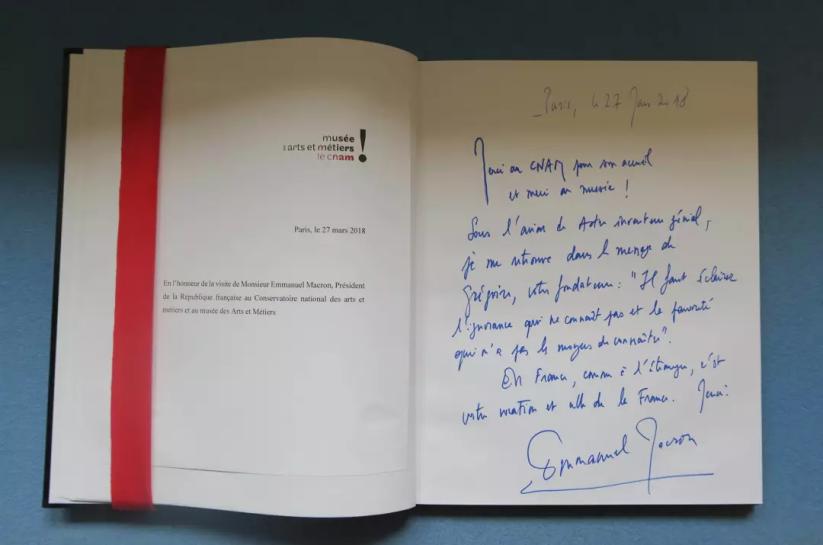 musée
arts et métiers
le cnam
!
Paris, le 27 mars 2018
En l'honneur de la visite de Monsieur Emmanuel Macron, Président
de la République française au Conservatoire national des arts et
métiers et au musée des Arts et Métiers
Paris, le 27 Mars 2018
Merci au CNAM pour son accueil
et merci au musée !
Sous l'avion de Ader inventeur génial,
je me retrouve dans le message de
Grégoire, votre fondateur : "Il faut éclairer
l'ignorance qui ne connaît pas et la pauvreté
qui n'a pas les moyens de connaître".
En France, comme à l'étranger, c'est
votre vocation et celle de la France. Merci.
Emmanuel Macron